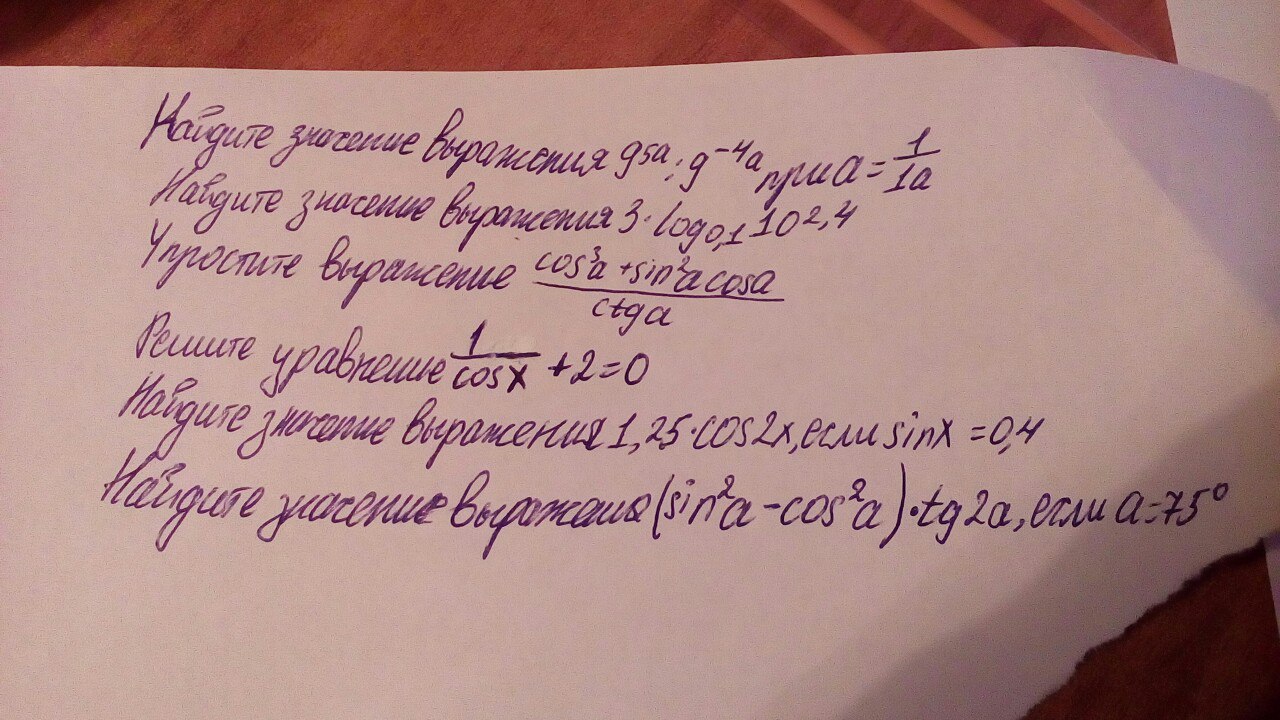 Найдите значение выражения 9^5a : 9^-4a при a = 1/1a
Найдите значение выражения 3·log_0,1 10^2,4
Упростите выражение (cos³a + sin²a cosa)/(ctga)
Решите уравнение 1/cosx + 2 = 0
Найдите значение выражения 1,25·cos2x, если sinx = 0,4
Найдите значение выражения (sin²a - cos²a)·tg2a, если a = 75°